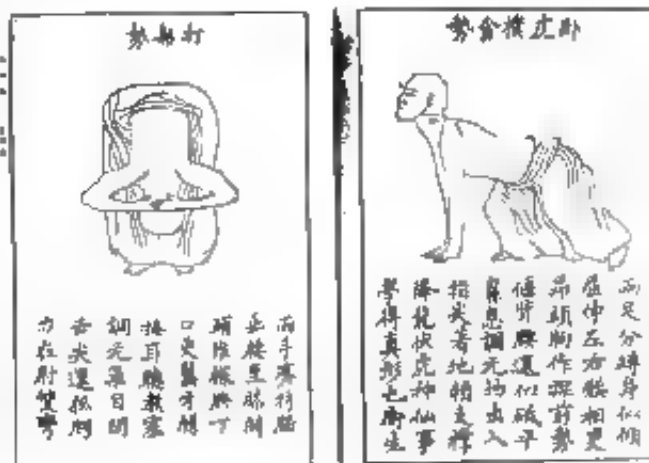 卧虎撲食勢
兩足分蹲身似傾
屈伸左右骽相更
昂頭胸作探前勢
偃背腰還似砥平
鼻息調元均出入
指尖著地賴支撐
降龍伏虎神仙事
學得真形也衛生
打躬勢
兩手齊持腦
垂腰至膝間
頭惟探胯下
口更齧牙關
掩耳聰教塞
調元氣自閑
舌尖還抵腭
力在肘雙彎